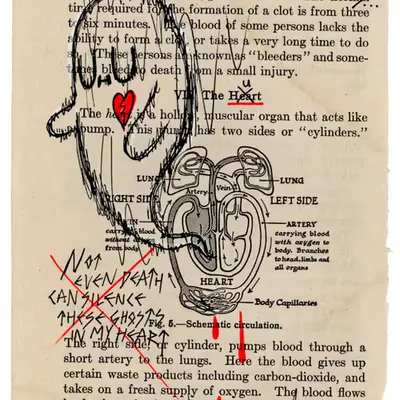 time required for the formation of a clot is from three
to six minutes. The blood of some persons lacks the
ability to form a clot or takes a very long time to do
so. These persons are known as "bleeders" and some-
times bleed to death from a small injury.
VII. The Heart
u
The heart is a hollow, muscular organ that acts like
a pump. This pump has two sides or "cylinders."
LUNG
Artery
Vein
LUNG
RIGHT SIDE
LEFT SIDE
VEIN
carrying blood
without oxygen
from body
ARTERY
carrying blood
with oxygen to
body. Branches
to head, limbs and
all organs
HEART
Body Capillaries
NOT
EVEN DEATH
CAN SILENCE
THESE GHOSTS
IN MY HEART
Fig. 5.—Schematic circulation.
The right side, or cylinder, pumps blood through a
short artery to the lungs. Here the blood gives up
certain waste products including carbon-dioxide, and
takes on a fresh supply of oxygen. The blood flows